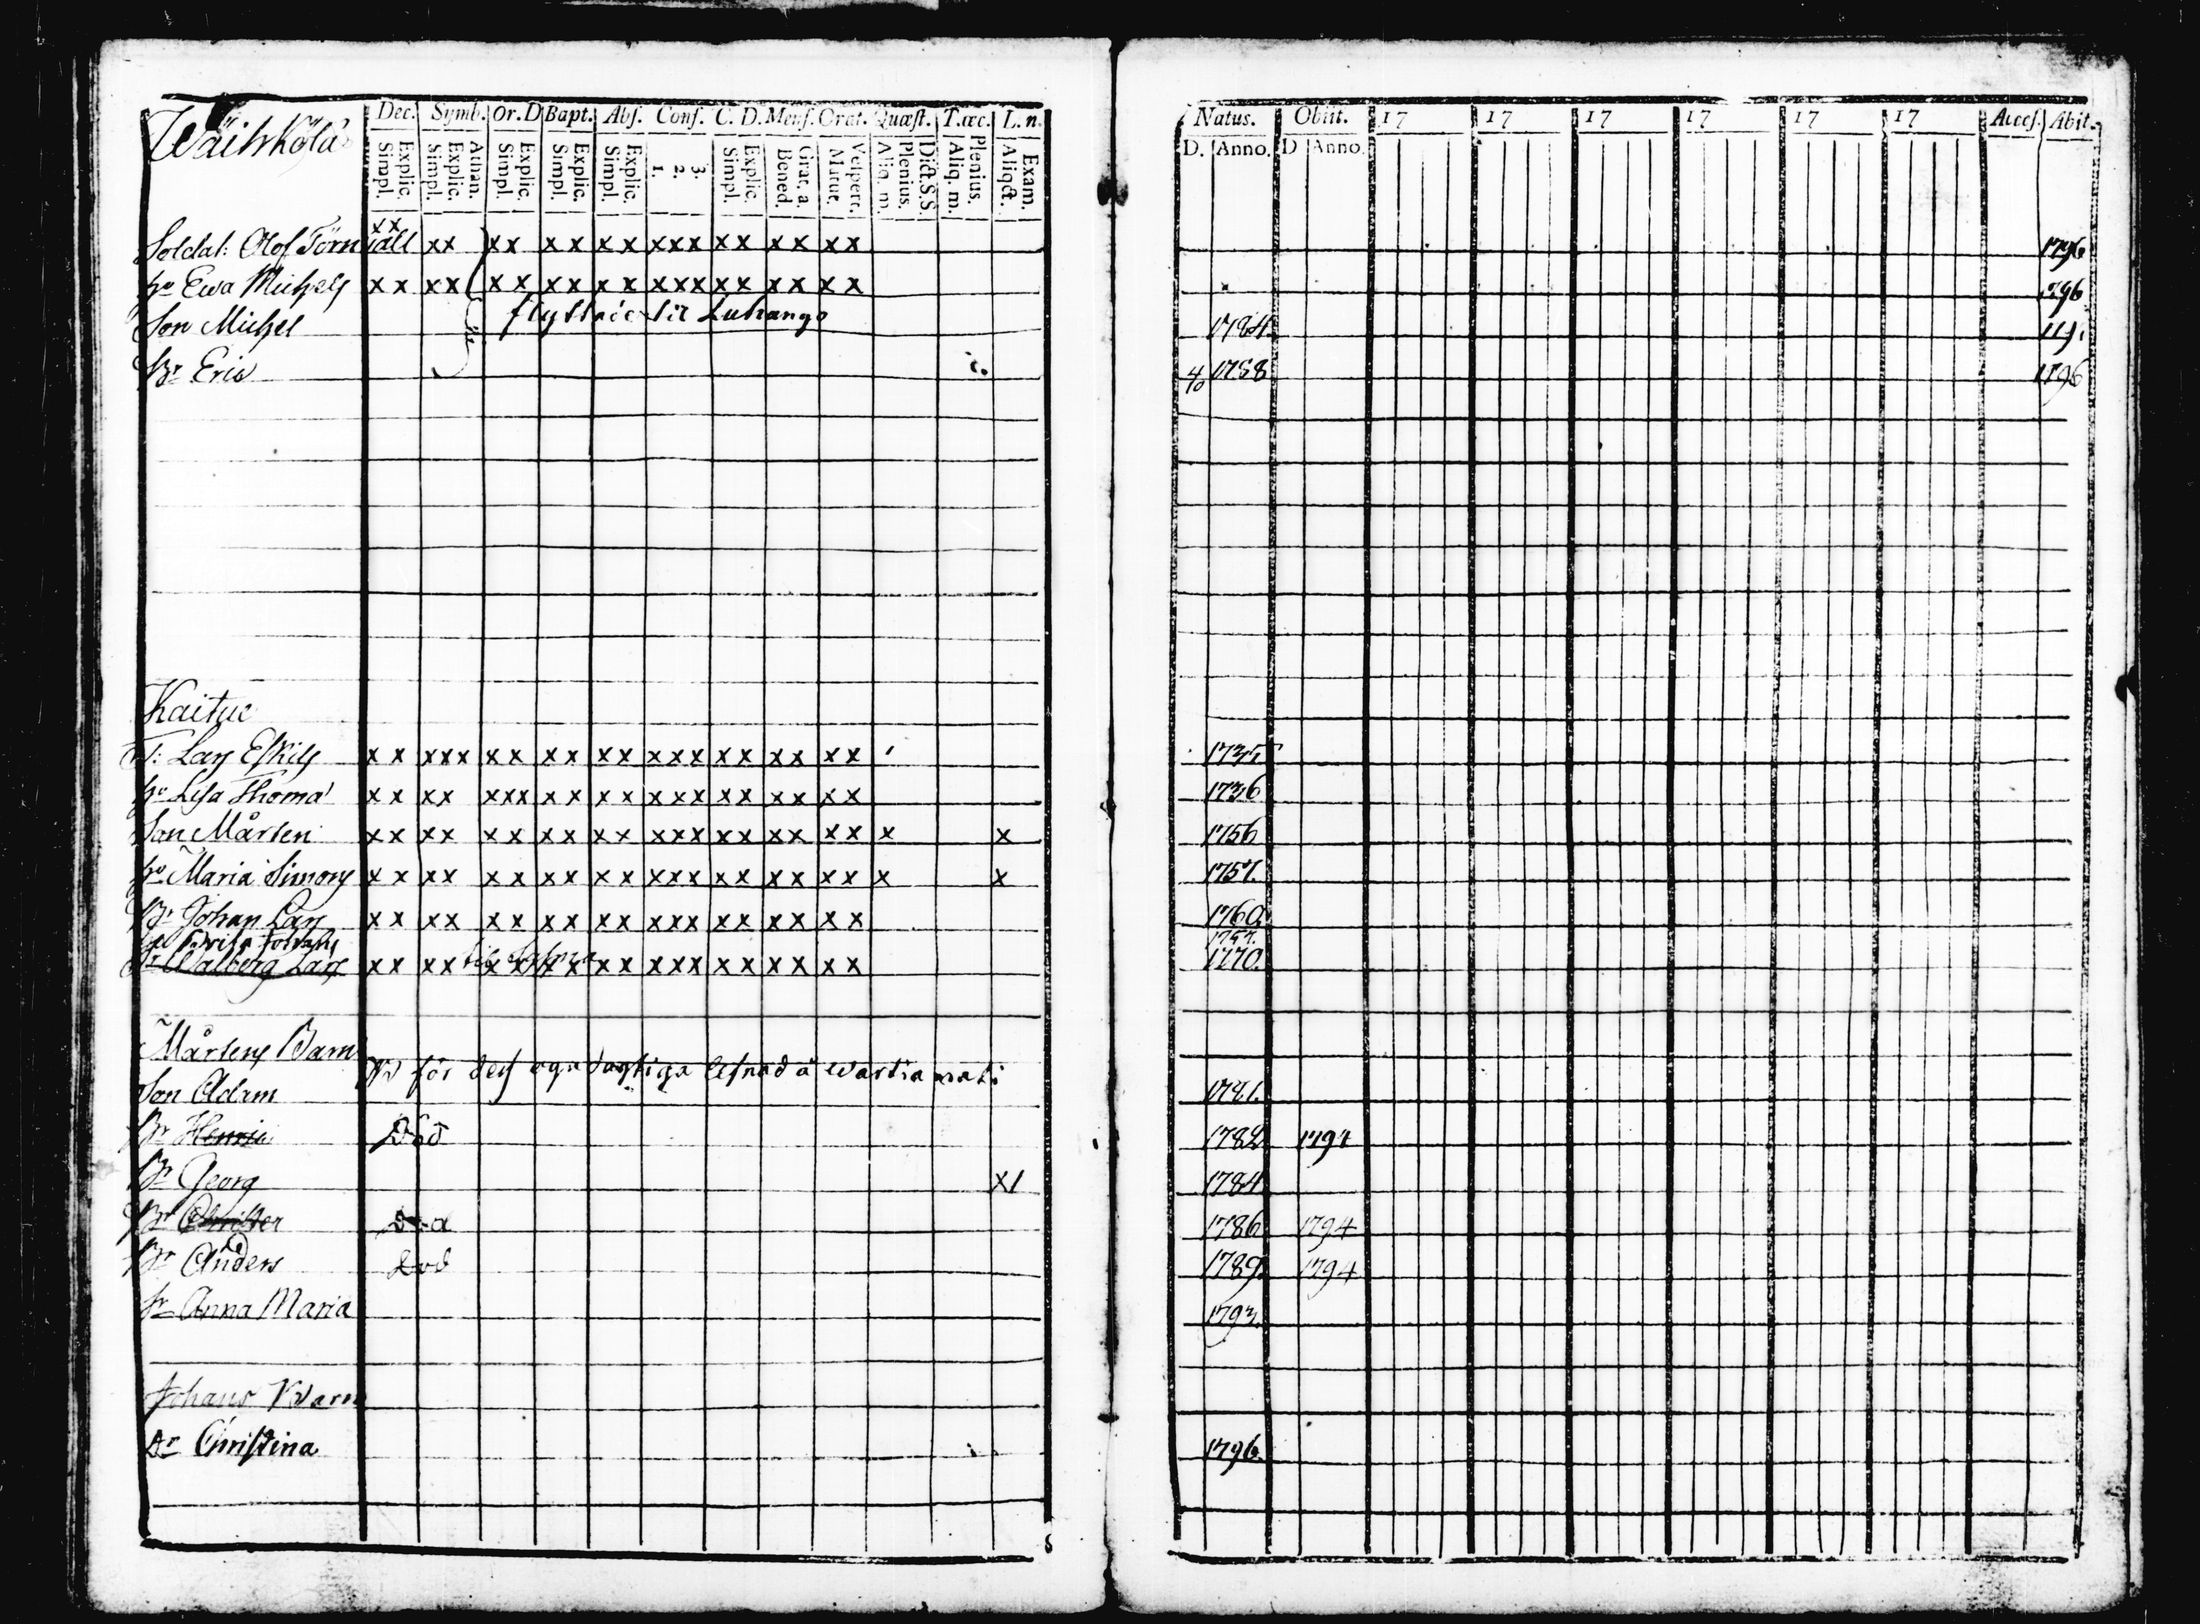 Wäihkölä
Dec. Symb. Or. D Bapt. Abs. Conf. C. D. Mens. Orat. Quæst. T.œc. L. n.
Explic. Simpl. Athan. Explic. Simpl. Explic. Simpl. Explic. Simpl. Explic. Simpl. 3. 2. 1. Explic. Simpl. Grat. a. Bened. Vespert. Matut. Dict. S.S. Plenius. Aliq. m. Plenius. Aliq. m. Exam. Aliqct.
Natus. Obiit. 17 17 17 17 17 17 Access. Abit.
D. Anno. D Anno.
Soldat: Olof Törn xx xx xx xx xx xxx xx xx xx 1796
hu Ewa Michels xx xx xx xx xx xxx xx xx xx 1796
flyttade til Luhango
Son Michel 1784.
Br Eric 1788 1796
Kaitue
T: Lars Eskils xx xxx xx xx xx xxx xx xx xx 1735
hu Lisa Thoma xx xx xxx xx xx xxx xx xx xx 1736
Son Mårten xx xx xx xx xx xxx xx xx xx x x 1756
hu Maria Simons xx xx xx xx xx xxx xx xx xx x x 1757.
Br Johan Lars xx xx xx xx xx xxx xx xx xx 1760.
1757.
Sr Walberg Lars xx xx xx xx xx xxx xx xx xx 1770.
Mårtens Barn
för dess lefnad
Son Adam 1781.
Br Henric Död 1782 1794
Br Georg x/ 1784.
Br Christer Död 1786 1794
Br Anders död 1789. 1794
Sr Anna Maria 1793.
Johans Barn
Dr Christina 1796.